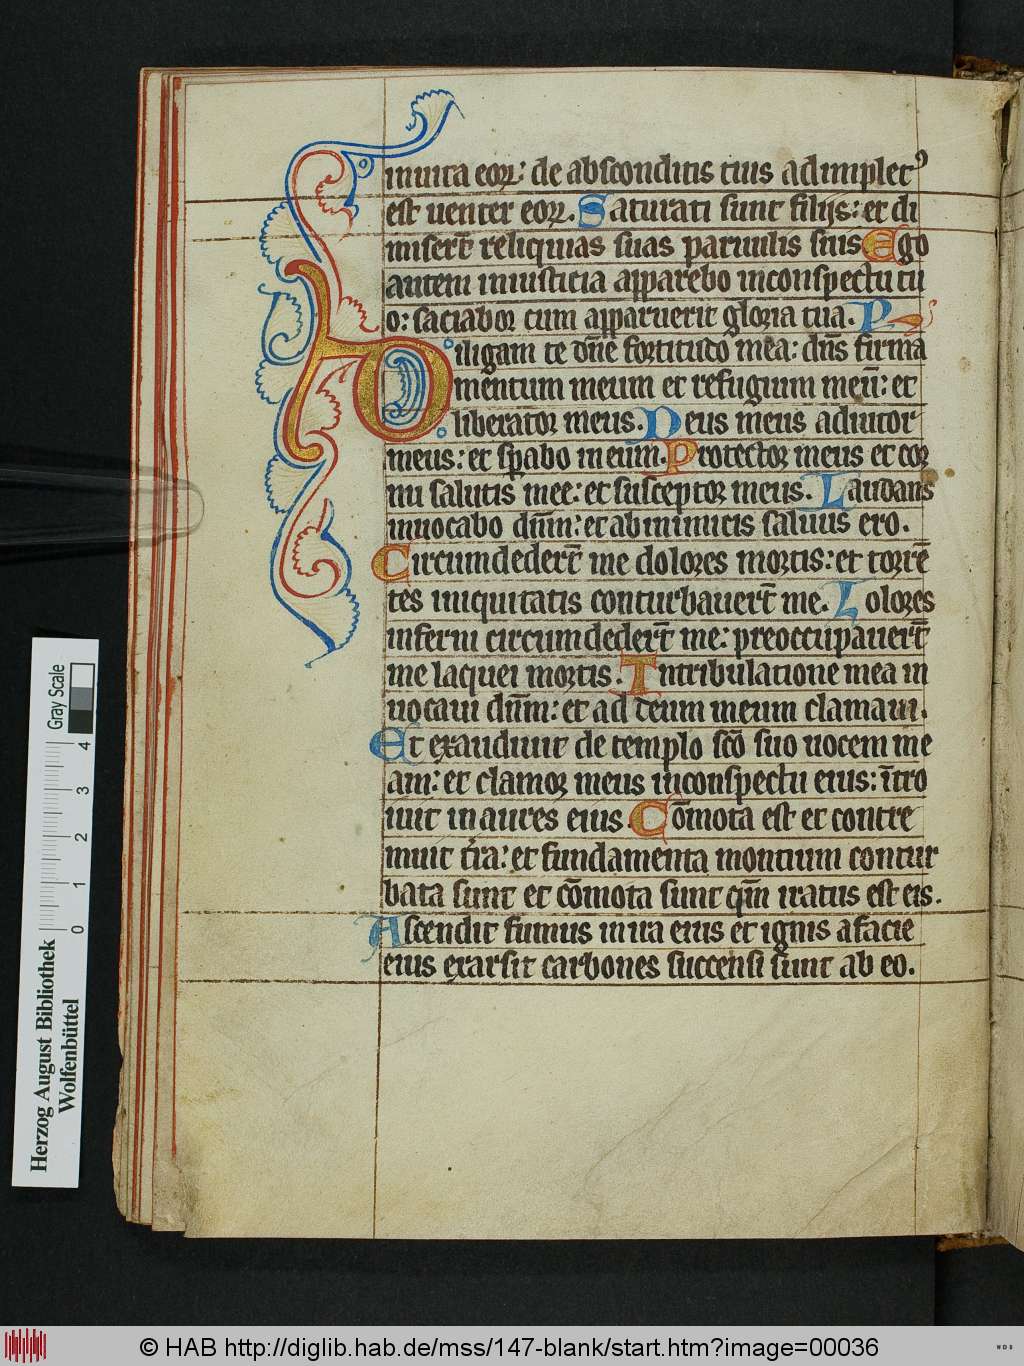 in uita eoꝝ: de absconditis tuis adimplet᷒
est uenter eoꝝ. Saturati sunt filijs: et di
miserūt reliquias suas paruulis suis Ego
autem in iusticia apparebo inconspectu tu
o: saciabor cum apparuerit gloria tua. Ps
Diligam te dn̄e fortitudo mea: dn̄s firma
mentum meum et refugium meū: et
liberator meus. Deus meus adiutor
meus: et sp̄abo in eum. Protector meus et cor
nu salutis mee: et susceptor meus. Laudans
inuocabo dn̄m: et ab inimicis saluus ero.
Circumdederūt me dolores mortis: et torrē
tes iniquitatis conturbauerūt me. Dolores
inferni circumdederūt me: preoccupauerūt
me laquei mortis. In tribulatione mea in
uocaui dn̄m: et ad deum meum clamaui.
Et exaudiuit de templo sc̄o suo uocem me
am: et clamor meus inconspectu eius: ītro
iuit in aures eius. Cōmota est et contre
muit t̄ra: et fundamenta montium contur
bata sunt et cōmota sunt qm̄ iratus est eis.
Ascendit fumus in ira eius et ignis a facie
eius exarsit carbones succensi sunt ab eo.
Herzog August Bibliothek
Wolfenbüttel
0 1 2 3 4
Gray Scale
© HAB http://diglib.hab.de/mss/147-blank/start.htm?image=00036